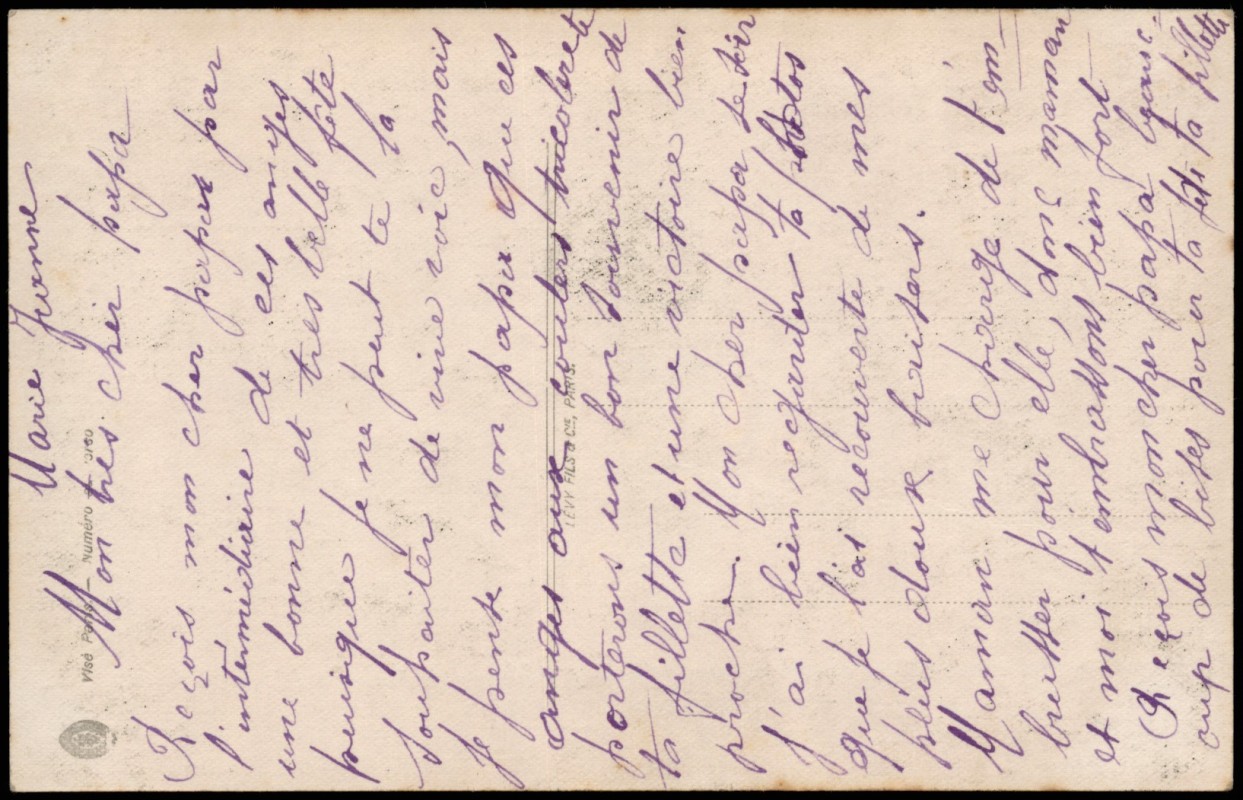 Marie Jeanne
Mon très cher papa
Reçois mon cher papa par
l'intermédiaire de ces anges
une bonne et très belle fête
puisque je ne peut te la
souhaiter de vive voic, mais
je pense mon papa que ces
anges aux couleurs tricolore te
porterons un bon souvenir de
ta fillette et une victoire bien
proche. Mon cher papa ce soir
j'ai bien regarder ta photos
que je l'ai recouverte de mes
plus doux baisers.
Maman me charge de t'em-
brasser pour elle, donc maman
et moi t'embrassons bien fort
Reçois mon cher papa beauc-
oup de bises pour ta fête ta fillette
Visé Paris — Numéro
LÉVY FILS & Cie, PARIS.